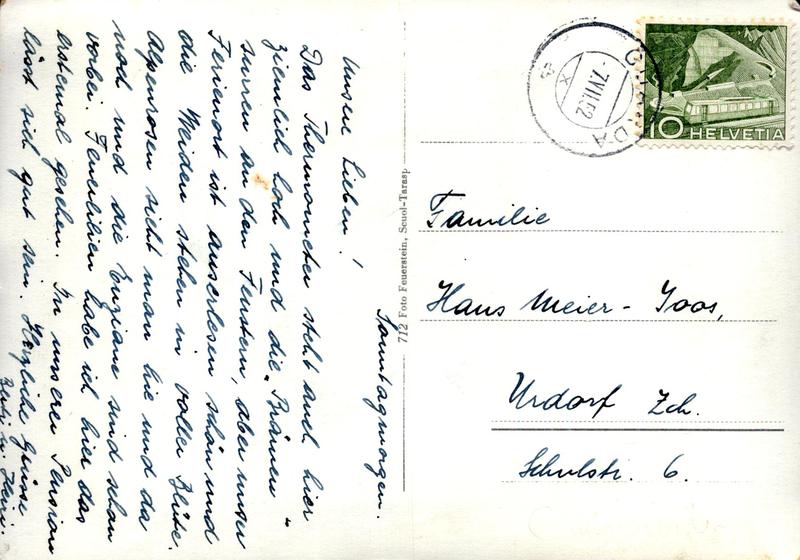 Sonntagmorgen.
Unsere Lieben!
Das Thermometer steht auch hier
ziemlich hoch und die "Brämen"
surren an den Fenstern, aber unser
Ferienort ist auserlesen schön und
die Weiden stehen in voller Blüte.
Alpenrosen sieht man hie und da
noch und die Enziane sind schon
vorbei. Feuerlilien habe ich hier das
erstemal gesehen. In unserer Pension
lässt sich gut sein. Herzliche Grüsse
Heini.
712 Foto Feuerstein, Scuol-Tarasp
GUARDA
-7.VII.52
X
10 HELVETIA
Familie
Hans Meier-Joos,
Urdorf Zch.
Schulstr. 6.